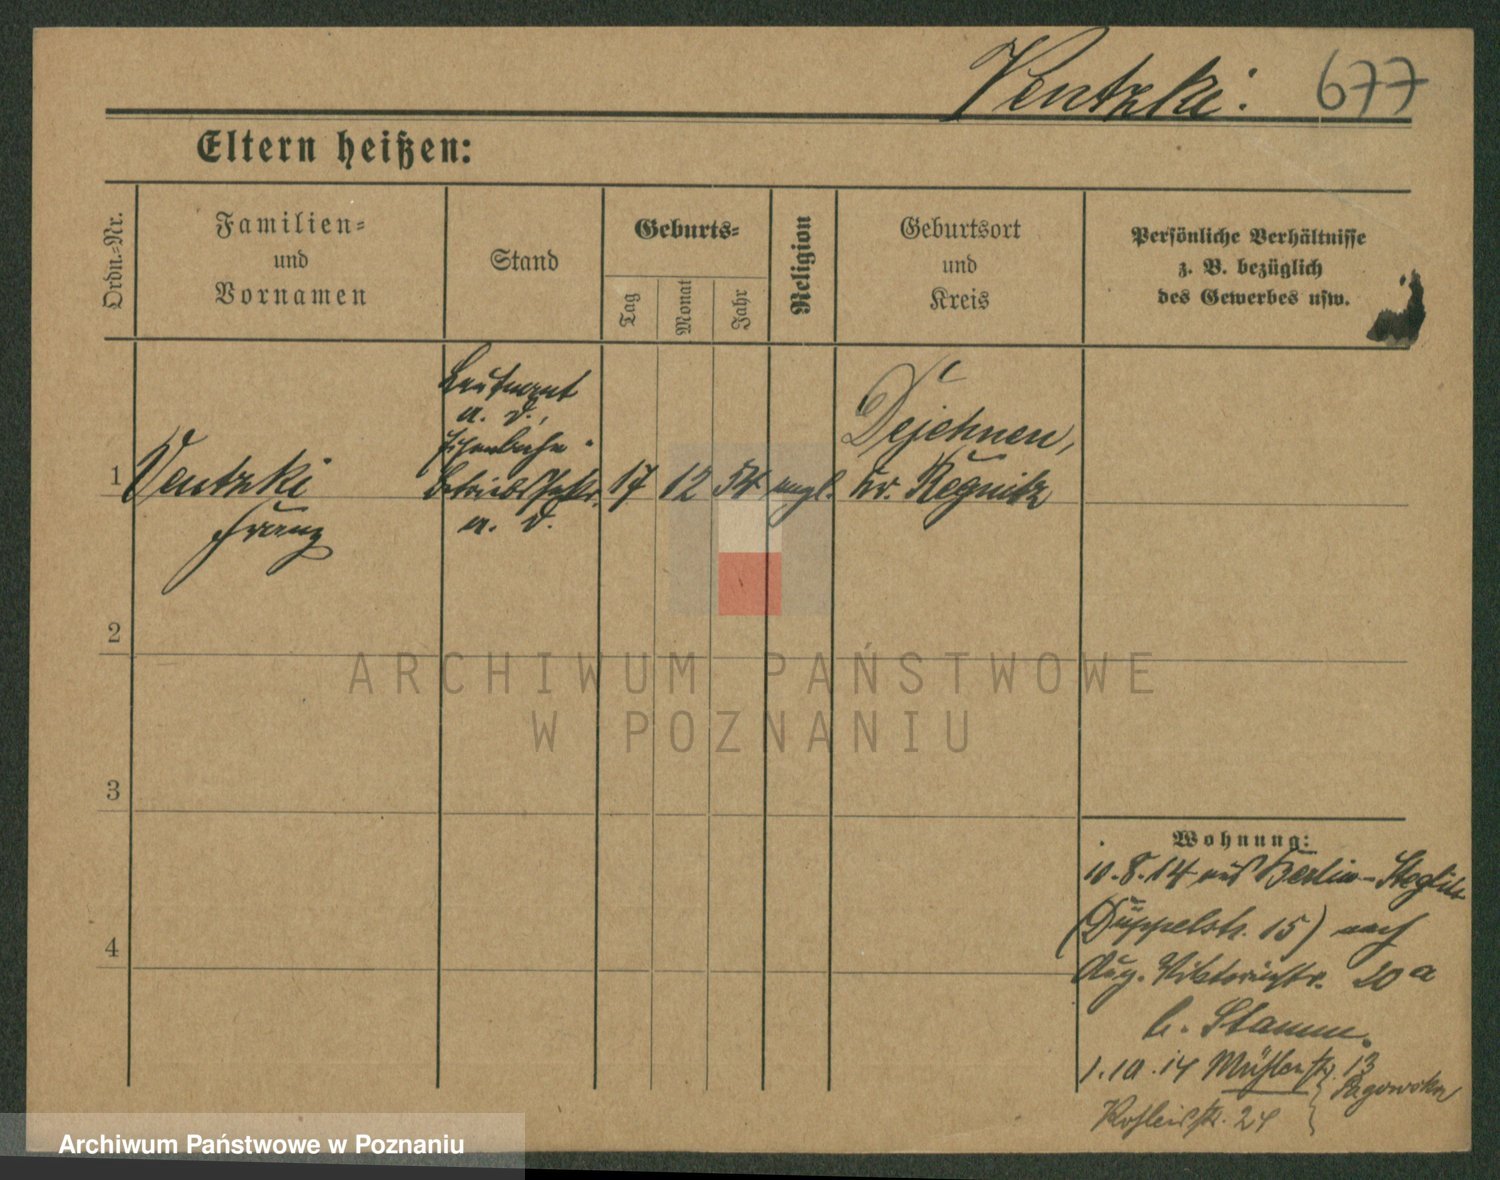 Ventzki. 677
Eltern heißen:
Ordn.-Nr.
Familien-
und
Vornamen
Stand
Geburts-
Tag
Monat
Jahr
Religion
Geburtsort
und
Kreis
Persönliche Verhältnisse
z. B. bezüglich
des Gewerbes usw.
Leutnant
a. D.,
Eisenbahn-
1 Ventzki Betriebssekr. 17 12 54 evgl. Kr.
Franz
a. D.
2
3
4
Wohnung:
10.8.14 aus Berlin-Steglitz
(Düppelstr. 15) nach
Aug. Viktoriastr. 20a
b. Stamm.
1.10.14 Mühlenstr. 13
24
ARCHIWUM PAŃSTWOWE
W POZNANIU
Archiwum Państwowe w Poznaniu